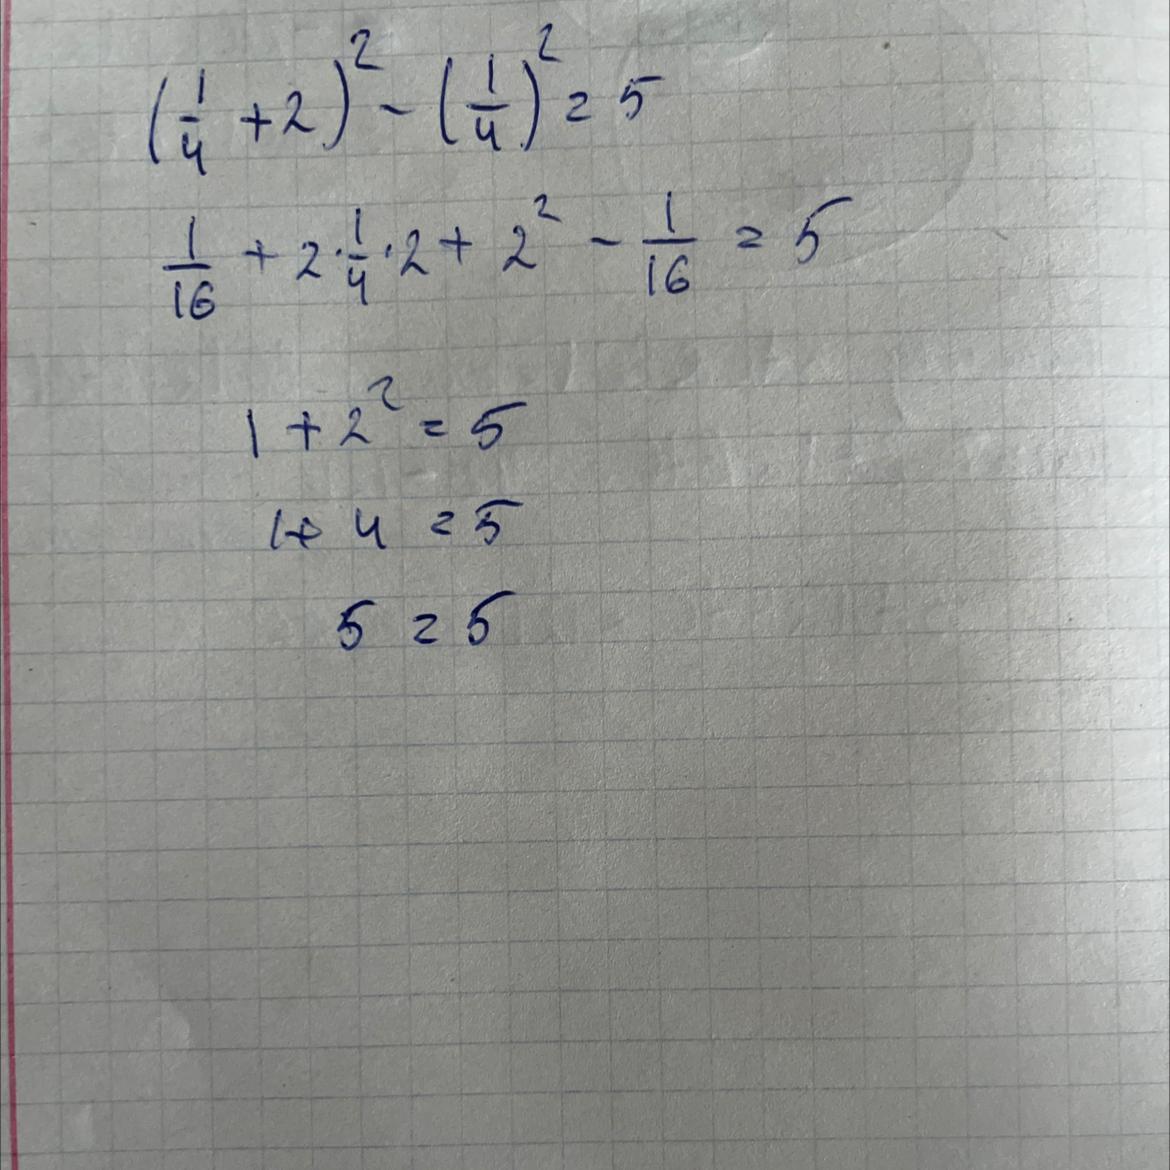 (1/4 + 2)² - (1/4)² = 5
1/16 + 2 · 1/4 · 2 + 2² - 1/16 = 5
1 + 2² = 5
1 + 4 = 5
5 = 5